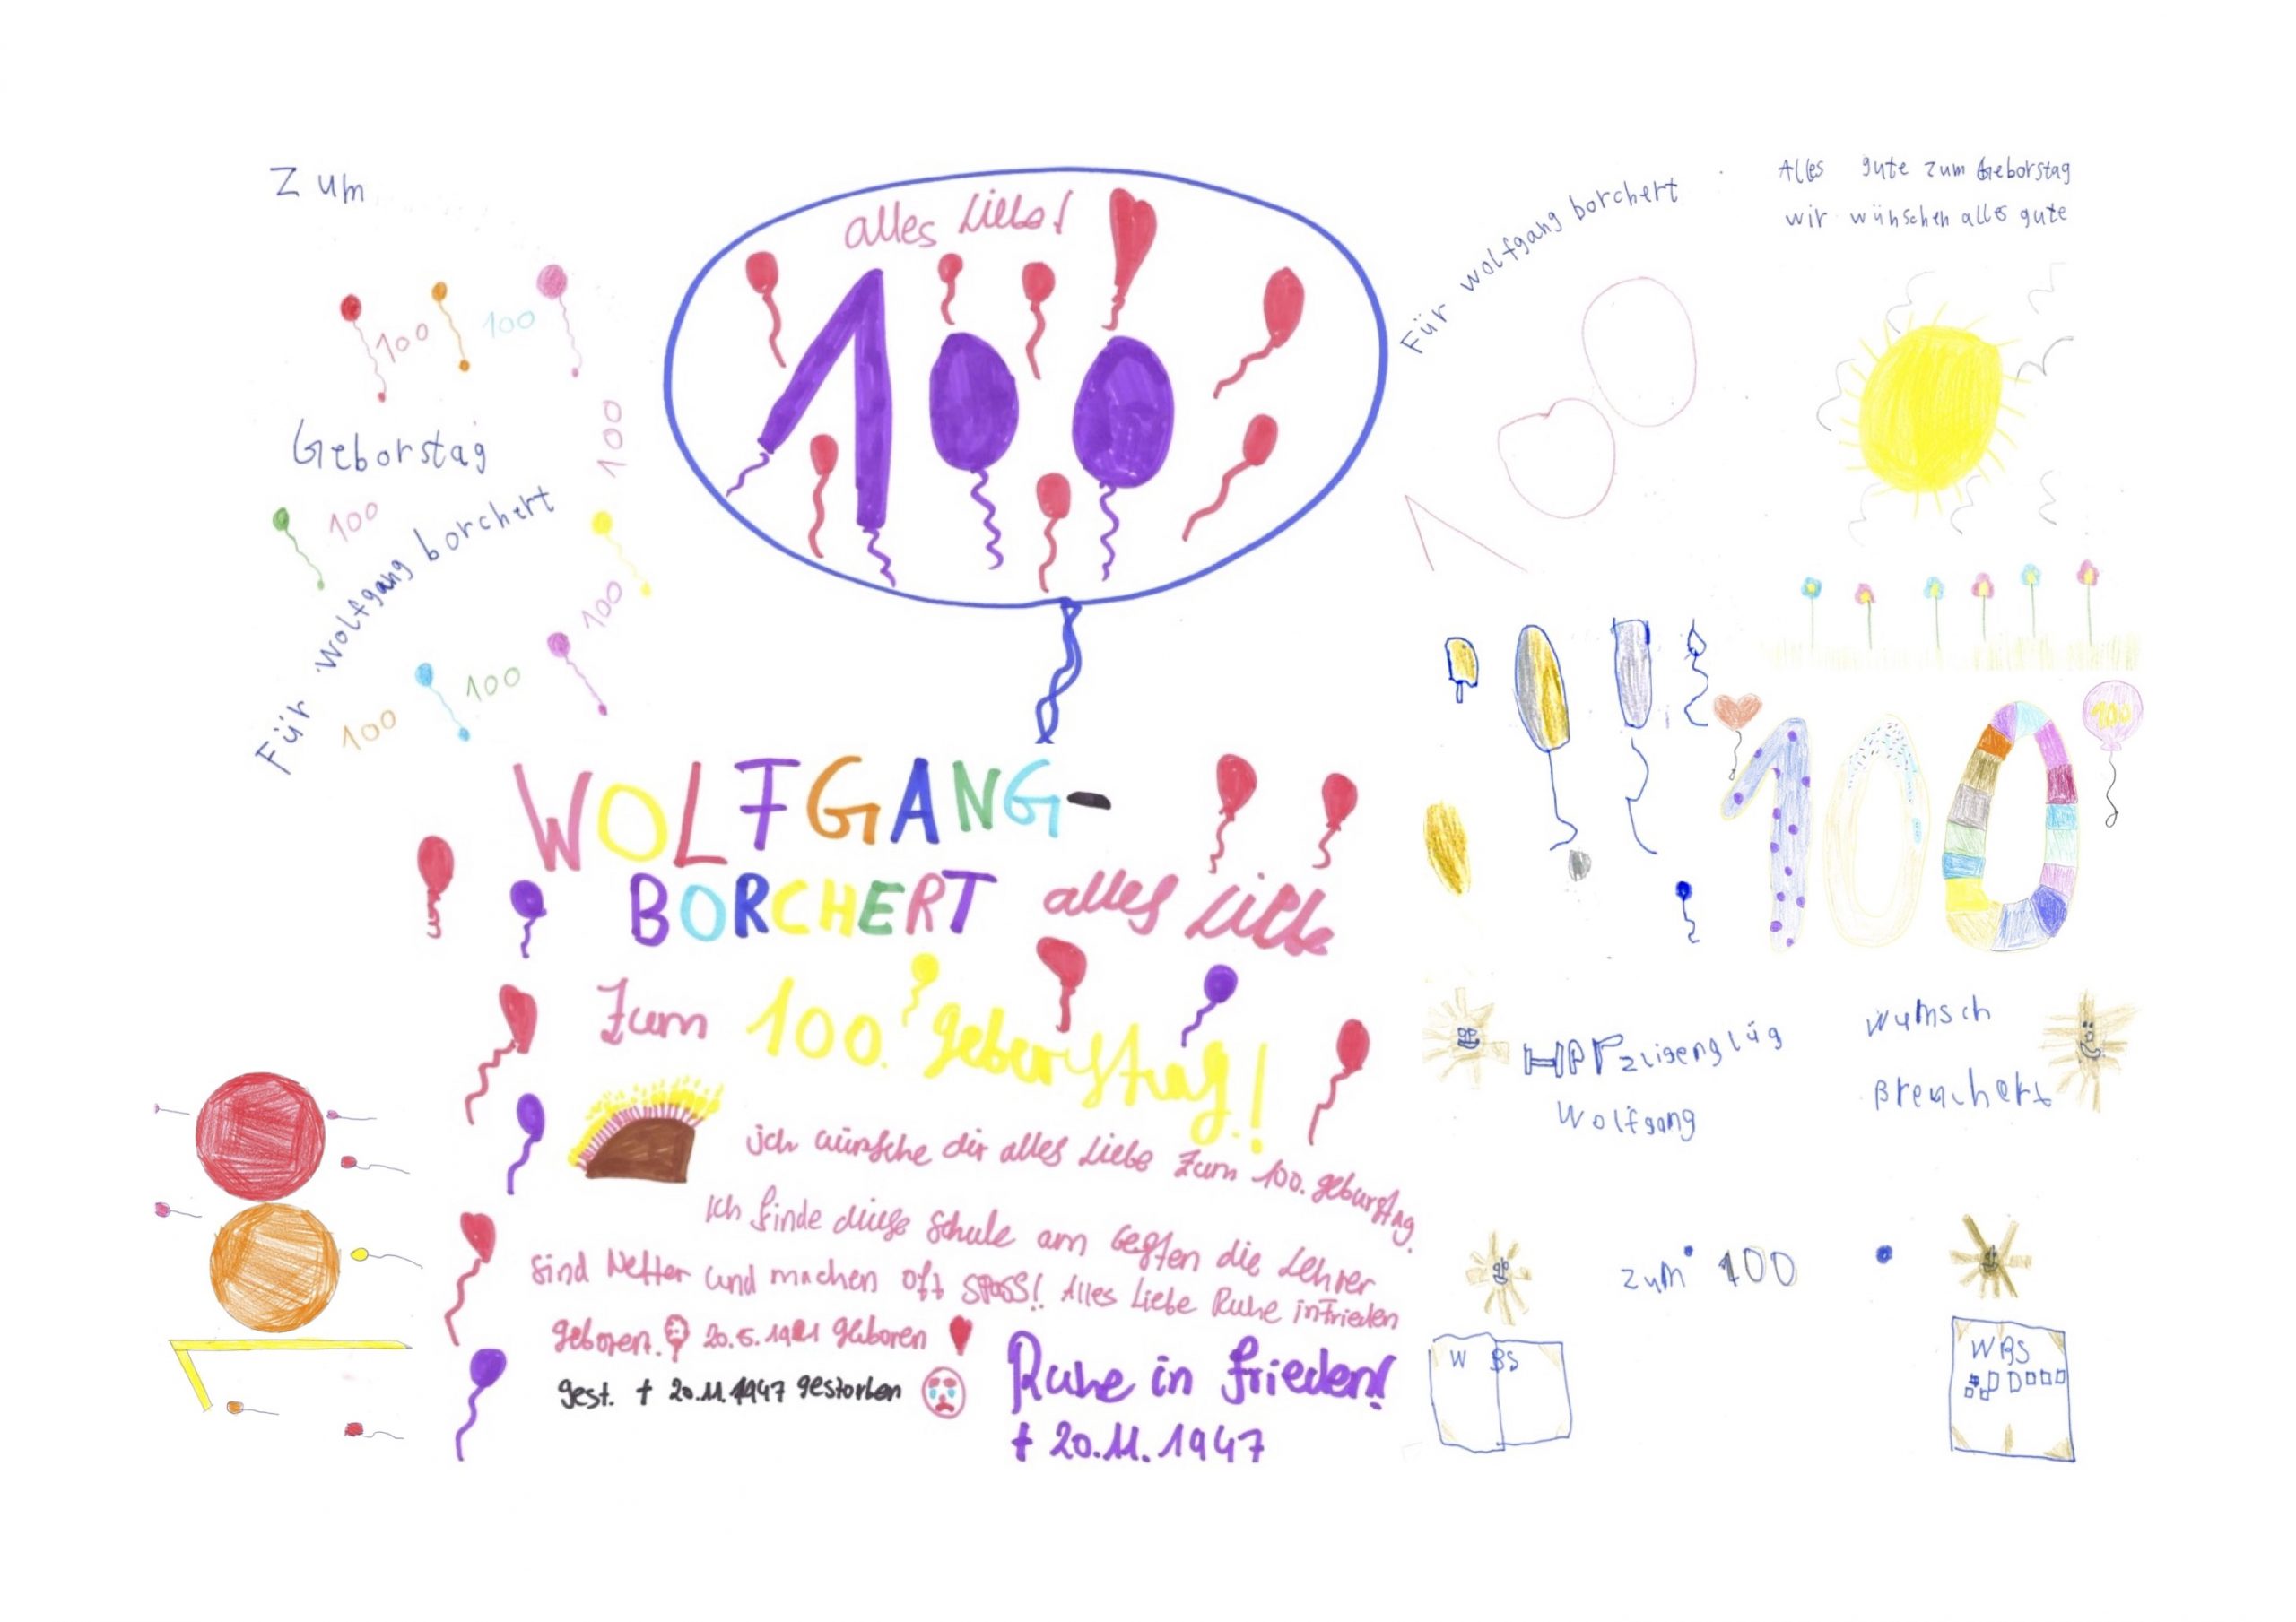 Zum
100
100
Geborstag
100
100
Für Wolfgang borchert
100
100
100
alles Liebe!
100
Für wolfgang borchert
100
Alles gute zum Geborstag
wir wünschen alles gute
100
100
WOLFGANG-
BORCHERT alles Liebe
Zum 100. geburstag!
ich wünsche dir alles Liebe Zum 100. geburstag.
Ich finde diese Schule am besten die Lehrer
sind Netter und machen oft SPASS! Alles Liebe Ruhe in Frieden
geboren. 20.5.1921 geboren
gest. † 20.11.1947 gestorben
Ruhe in frieden!
† 20.11.1947
100
Wolfgang
Wunsch
zum 100
W BS
WBS